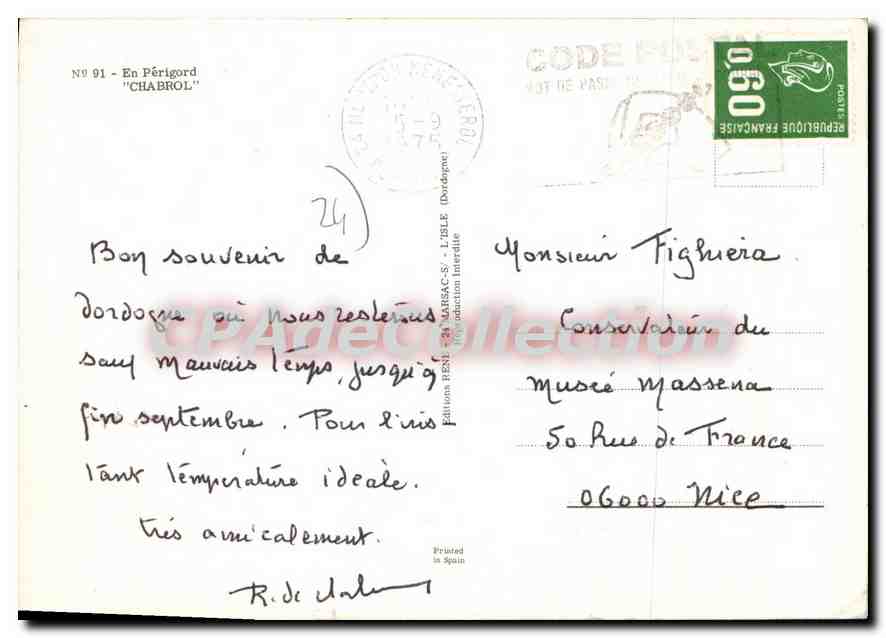 Nº 91 - En Périgord
"CHABROL"
CODE
MOT DE PASSE
0,60
POSTES
REPUBLIQUE FRANÇAISE
24
Bon souvenir de
Dordogne où nous resterons
sauf mauvais temps, jusqu'à
fin septembre. Pour l'ins
tant température idéale.
très amicalement.
R. de
Editions RENE - 24 MARSAC-S/ - L'ISLE (Dordogne)
Reproduction Interdite
Monsieur Fighiera
Conservateur du
Musée Massena
50 Rue de France
06000 Nice
Printed
in Spain
CPAdeCollection